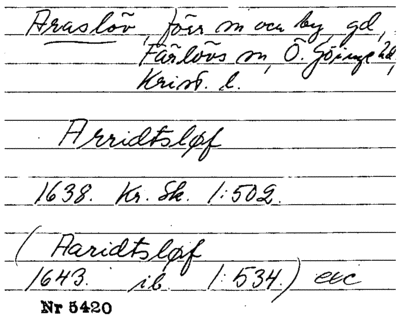 Araslöv, förr sn och by, gd,
Färlövs sn, Ö. Göinge hd,
Krist. l.
Arridtsløf
1638. Kr. Sk. 1:502.
(Aaridtsløf
1643. ib. 1:534.) etc
Nr 5420